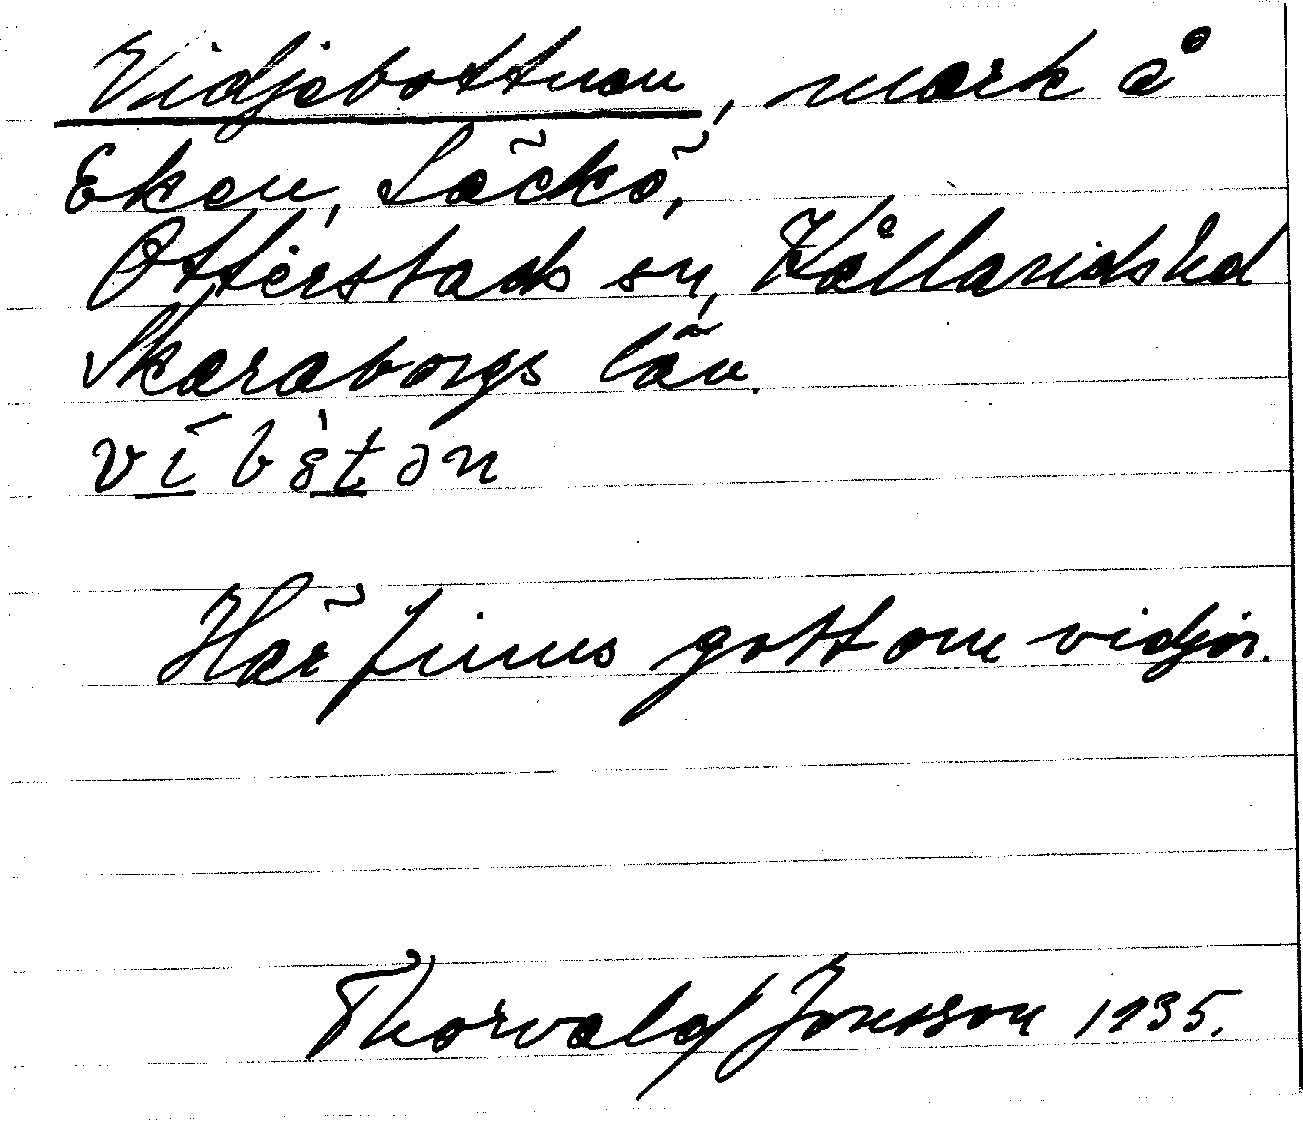 Vidjebottnan, mark å
Eken, Läckö,
Otterstads sn, Kållands hd
Skaraborgs län.
Här finns gott om vidjor.
Thorvald Jonsson 1935.